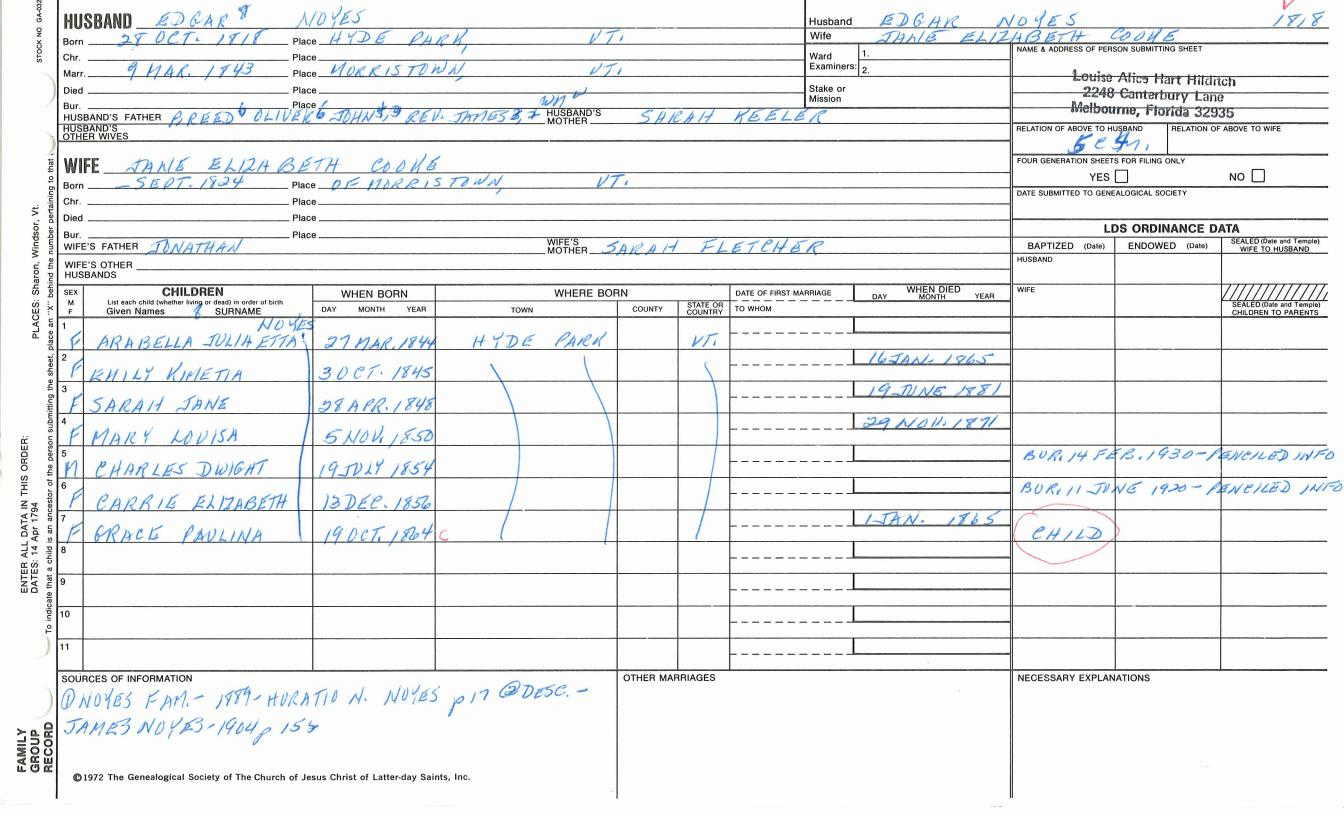 STOCK NO GA-032
HUSBAND EDGAR 8 NOYES
Husband EDGAR NOYES 1818
Born 28 OCT. 1818 Place HYDE PARK, VT.
Wife JANE ELIZABETH COOKE
Chr. Place
Ward Examiners: 1. 2.
NAME & ADDRESS OF PERSON SUBMITTING SHEET
Marr. 9 MAR. 1843 Place MORRISTOWN, VT.
Louise Alice Hart Hilditch
2248 Canterbury Lane
Melbourne, Florida 32935
Died Place
Stake or Mission
Bur. Place
HUSBAND'S FATHER BREED 6 OLIVER 6 JOHN REV. JAMES HUSBAND'S MOTHER SARAH KEELER
HUSBAND'S OTHER WIVES
RELATION OF ABOVE TO HUSBAND RELATION OF ABOVE TO WIFE
WIFE JANE ELIZABETH COOKE
FOUR GENERATION SHEETS FOR FILING ONLY
YES NO
Born – SEPT. 1824 Place OF MORRISTOWN, VT.
DATE SUBMITTED TO GENEALOGICAL SOCIETY
Chr. Place
Died Place
Bur. Place
LDS ORDINANCE DATA
WIFE'S FATHER JONATHAN WIFE'S MOTHER SARAH FLETCHER
BAPTIZED (Date) ENDOWED (Date) SEALED (Date and Temple) WIFE TO HUSBAND
WIFE'S OTHER HUSBANDS
HUSBAND
SEX M F CHILDREN WHEN BORN WHERE BORN DATE OF FIRST MARRIAGE WHEN DIED
List each child (whether living or dead) in order of birth
Given Names 8 SURNAME DAY MONTH YEAR TOWN COUNTY STATE OR COUNTRY TO WHOM DAY MONTH YEAR
WIFE SEALED (Date and Temple) CHILDREN TO PARENTS
NOYES
1 F ARABELLA JULIA ETTA 27 MAR. 1844 HYDE PARK VT.
2 F EMILY KIMETIA 3 OCT. 1845 16 JAN. 1865
3 F SARAH JANE 28 APR. 1848 19 JUNE 1881
4 F MARY LOUISA 5 NOV. 1850 29 NOV. 1871
5 M CHARLES DWIGHT 19 JULY 1854 BUR. 14 FEB. 1930 - PENCILED INFO
6 F CARRIE ELIZABETH 13 DEC. 1856 BUR. 11 JUNE 1920 - PENCILED INFO
7 F GRACE PAULINA 19 OCT. 1864 C 1 JAN. 1865 CHILD
8
9
10
11
SOURCES OF INFORMATION OTHER MARRIAGES NECESSARY EXPLANATIONS
① NOYES FAM. - 1889 - HORATIO N. NOYES p 17 ② DESC. -
JAMES NOYES - 1904 p
©1972 The Genealogical Society of The Church of Jesus Christ of Latter-day Saints, Inc.
ENTER ALL DATA IN THIS ORDER:
DATES: 14 Apr 1794 PLACES: Sharon, Windsor, Vt.
To indicate that a child is an ancestor of the person submitting the sheet, place an "X" behind the number pertaining to that
FAMILY
GROUP
RECORD